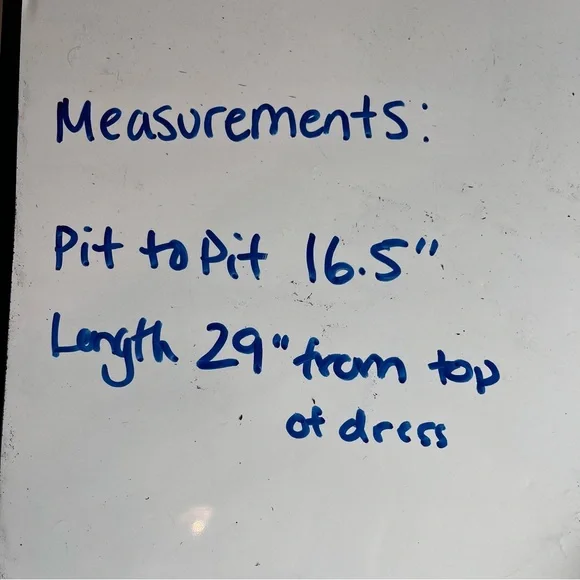 Measurements:
Pit to Pit 16.5"
Length 29" from top
of dress